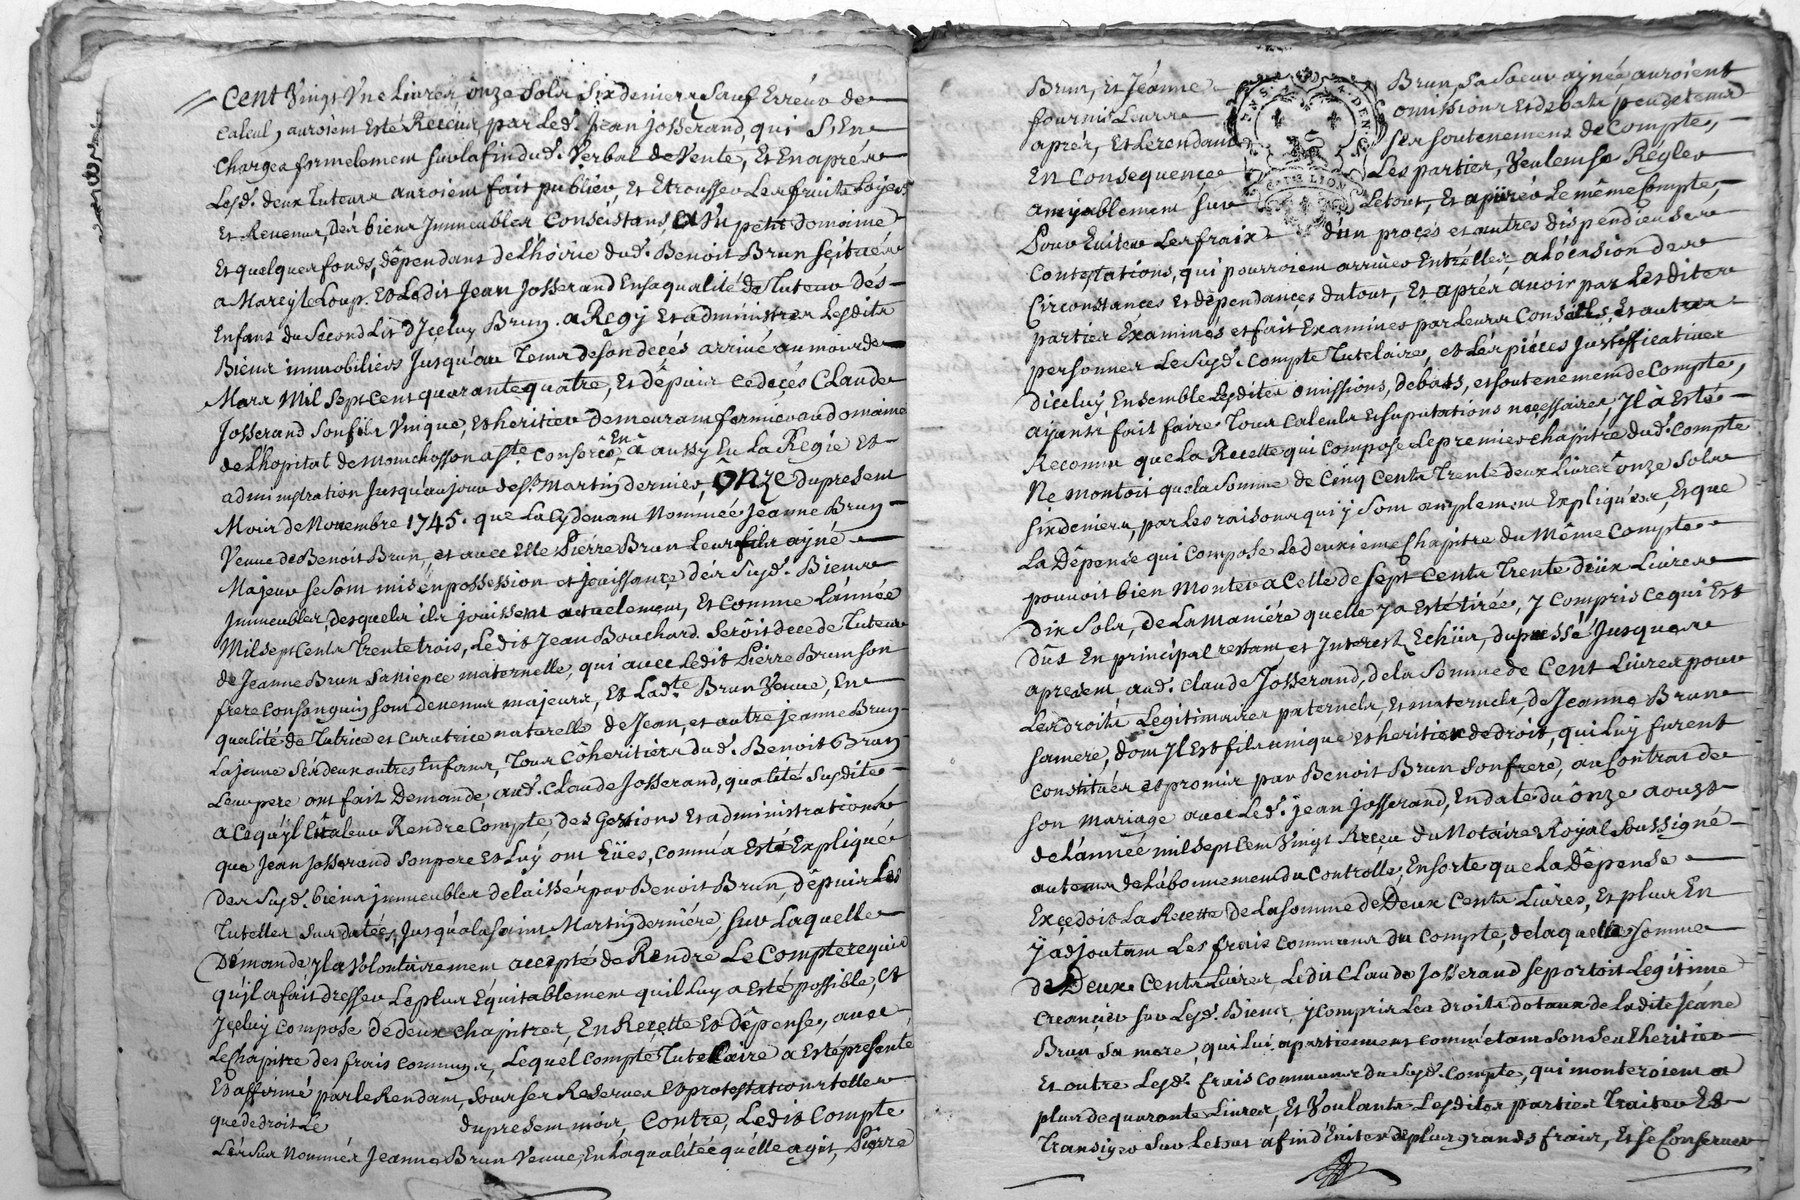 Cent Vingt Une Livres, onze Sols Six deniers Sauf Erreur de
calcul, auroient Esté Receus par Led. Jean Josserand, qui S'En
Chargea formelement sur la fin dud. Verbal de Vente, Et En après
Lesd. deux Tuteurs auroient fait publier, Et Etrousser Les fruits Loyers
Et Revenus, Des biens Immeubles Consistans, En Un petit Domaine
Et quelques fonds, dépendans de L'hoirie dud. Benoit Brun Scitués
a Marcy le Loup. Et Ledit Jean Josserand En sa qualité de Tuteur Des
Enfans du Second Lit d'Iceluy Brun. a Regy Et administrés Lesdits
Biens immobiliers Jusqu'au Tems de son decés arrivé au mois de
Mars Mil Sept cent quarante quatre, Et dépuis ce decés Claude
Josserand Son fils Unique, Et heritier Demeurant fermier au domaine
de L'hopital de a Ste. Consorce, En a aussy Eu La Régie Et
administration Jusqu'au jour de St. Martin dernier, Onze du present
Mois de Novembre 1745. que La cy devant Nommée Jeanne Brun
Veuve de Benoit Brun, et avec Elle Pierre Brun Leur fils ayné
Majeur Se Sont mis en possession et jouissance, des Susd. Biens
Immeubles, desquels ils jouissent actuelement, Et Comme L'année
Mil Sept Cents Trente trois, Ledit Jean Bouchard. Seroit decedé Tuteur
de Jeanne Brun Sa niepce maternelle, qui avec Ledit Pierre Brun Son
frere Consanguin Sont devenus majeurs, Et Lad.te Brun Veuve, En
qualité de Tutrice et Curatrice naturelle de Jean, et autre Jeanne Brun
La jeune Ses deux autres Enfans, Tous Cöheritiers dud. Benoit Brun
Leur pere ont fait Demande, aud. Claude Josserand, qualité Susdite
a Ce qu'yl Eüt a leur Rendre Compte, des Gestions Et administrations
que Jean Josserand Son pere Et Luy ont Eües, comm'a Esté Expliqué
Des Susd. biens immeubles delaissés par Benoit Brun, dépuis Les
Tutelles Sus datées, Jusqu'a la Saint Martin derniére, Sur Laquelle
Demande yl a volontairement accepté de Rendre Le Compte requis
qu'il a fait dresser Le plus Equitablement qu'il Luy a Esté possible, Et
Iceluy Composé de deux chapitres, En Recette Et dépense, avec
Le Chapitre des frais Communs, Lequel Compte Tutelaire a Esté presenté
Et affirmé par le Rendant, Sous ses Reserves Et protestations telles
que de droit Le du present mois, Contre Ledit Compte
Les Sus Nommés Jeanne Brun Veuve, En La qualité qu'elle agit, Pierre
Brun, Et Jeanne Brun Sa Soeur aynée auroient
fourni Leurs omissions Et debats, peu de tems
aprés, Et Le rendant Ses Soutenemens de Compte,
En Consequence Les parties, Voulans Se Régler
amyablement Sur Le tout, Et apurer Le même Compte,
Pour Eviter Les fraix d'un procés et autres dispendieuses
Contestations, qui pourroient arriver Entr'elles a L'ocasion des
Circonstances Et dépendances du tout, Et aprés avoir par Lesdites
parties Examinés et fait Examiner par Leurs Conseils, Et autres
personnes Le Susd. Compte Tutelaire, et Les piéces Justifficatives
d'iceluy, Ensemble Lesdites omissions, debats, et soutenemens de Compte,
ayant fait faire Tous Calculs Et Suputations necessaires, Il a Esté
Reconnu que La Recette qui Compose Le premier Chapitre dud. Compte
Ne montoit que La Somme de Cinq Cents Trente deux Livres onze Sols
Six deniers, par Les raisons qui y Sont amplement Expliquées, Et que
La Dépense qui Compose Le deuxieme Chapitre du Même Compte
pouvoit bien Monter a Celle de Sept Cents Trente deux Livres
Dix Sols, De La maniére qu'elle y a Esté tirée, y Compris Ce qui Est
Dus En principal restant et Interest Echüs, du passé Jusques
a present aud. Claude Josserand, de La Somme de Cent Livres pour
Les droits Légitimaires paternels, Et maternels, de Jeanne Brun
Sa mere, dont Il Est fils unique Et heritier de droit, qui Luy furent
Constitués Et promis par Benoit Brun Son frere, au Contrat de
Son Mariage avec Led. Jean Josserand, En date du onze aoust
de L'année mil Sept Cent Vingt Reçu du Notaire Royal Soussigné
au tems de L'abonnement du Controlle, En sorte que La Dépense
Excedoit La Recette de La Somme de Deux Cents Livres, Et plus En
y adjoutant Les frais Communs du Compte, de laquelle Somme
de Deux Cents Livres Ledit Claude Josserand Se portoit Legitime
Creancier Sur Lesd. Biens, y Compris Les droits dotaux de Ladite Jeane
Brun Sa mere, qui Lui apartiennent Comm'étant Son Seul heritier
Et outre Lesd. frais Communs du Susd. Compte, qui monteroient a
plus de quarante Livres, Et Voulants Lesdites parties Traiter Et
Transiger Sur Le tout afin d'Eviter de plus grands frais, Et Se Conserver